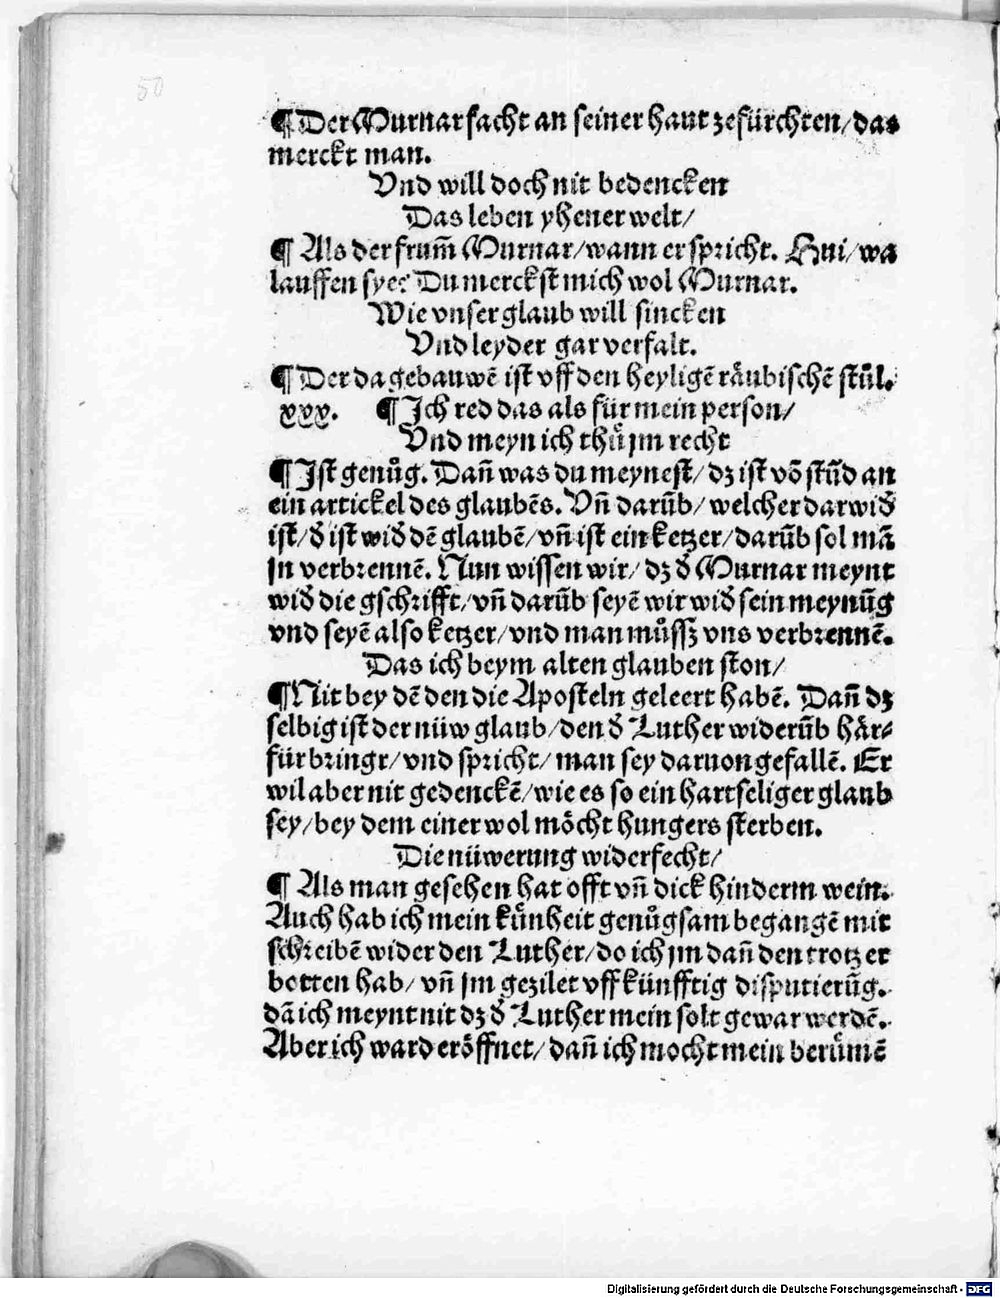 50
¶ Der Murnar facht an seiner haut zefürchten/ das
merckt man.
Vnd will doch nit bedencken
Das leben yhener welt/
¶ Als der frum̃ Murnar/ wann er spricht. Hui/ wa
lauffen sye? Du merckst mich wol Murnar.
Wie vnser glaub will sincken
Vnd leyder gar verfalt.
¶ Der da gebauwẽ ist vff den heyligẽ räubischẽ stůl.
xxx. ¶ Ich red das als für mein person/
Vnd meyn ich thů jm recht
¶ Ist genůg. Dañ was du meynest/ dz ist võ stũd an
ein artickel des glaubẽs. Vñ darũb/ welcher darwið
ist/ ð ist wið dẽ glaubẽ/ vñ ist ein ketzer/ darũb sol mã
jn verbrennẽ. Nun wissen wir/ dz ð Murnar meynt
wið die gschrifft/ vñ darũb seyẽ wir wið sein meynũg
vnd seyẽ also ketzer/ vnd man můssz vns verbrennẽ.
Das ich beym alten glauben ston/
¶ Nit bey dẽ den die Aposteln geleert habẽ. Dañ dz
selbig ist der nüw glaub/ den ð Luther widerũb här⸗
fürbringt/ vnd spricht/ man sey daruon gefallẽ. Er
wil aber nit gedenckẽ/ wie es so ein hartseliger glaub
sey/ bey dem einer wol möcht hungers sterben.
Die nüwerung widerfecht/
¶ Als man gesehen hat offt vñ dick hinderm wein.
Auch hab ich mein künheit genůgsam begangẽ mit
schreibẽ wider den Luther/ do ich jm dañ den trotz er
botten hab/ vñ jm gezilet vff künfftig disputierũg.
dã ich meynt nit dz ð Luther mein solt gewar werdẽ.
Aber ich ward eröffnet/ dañ ich mocht mein berümẽ
Digitalisierung gefördert durch die Deutsche Forschungsgemeinschaft - DFG